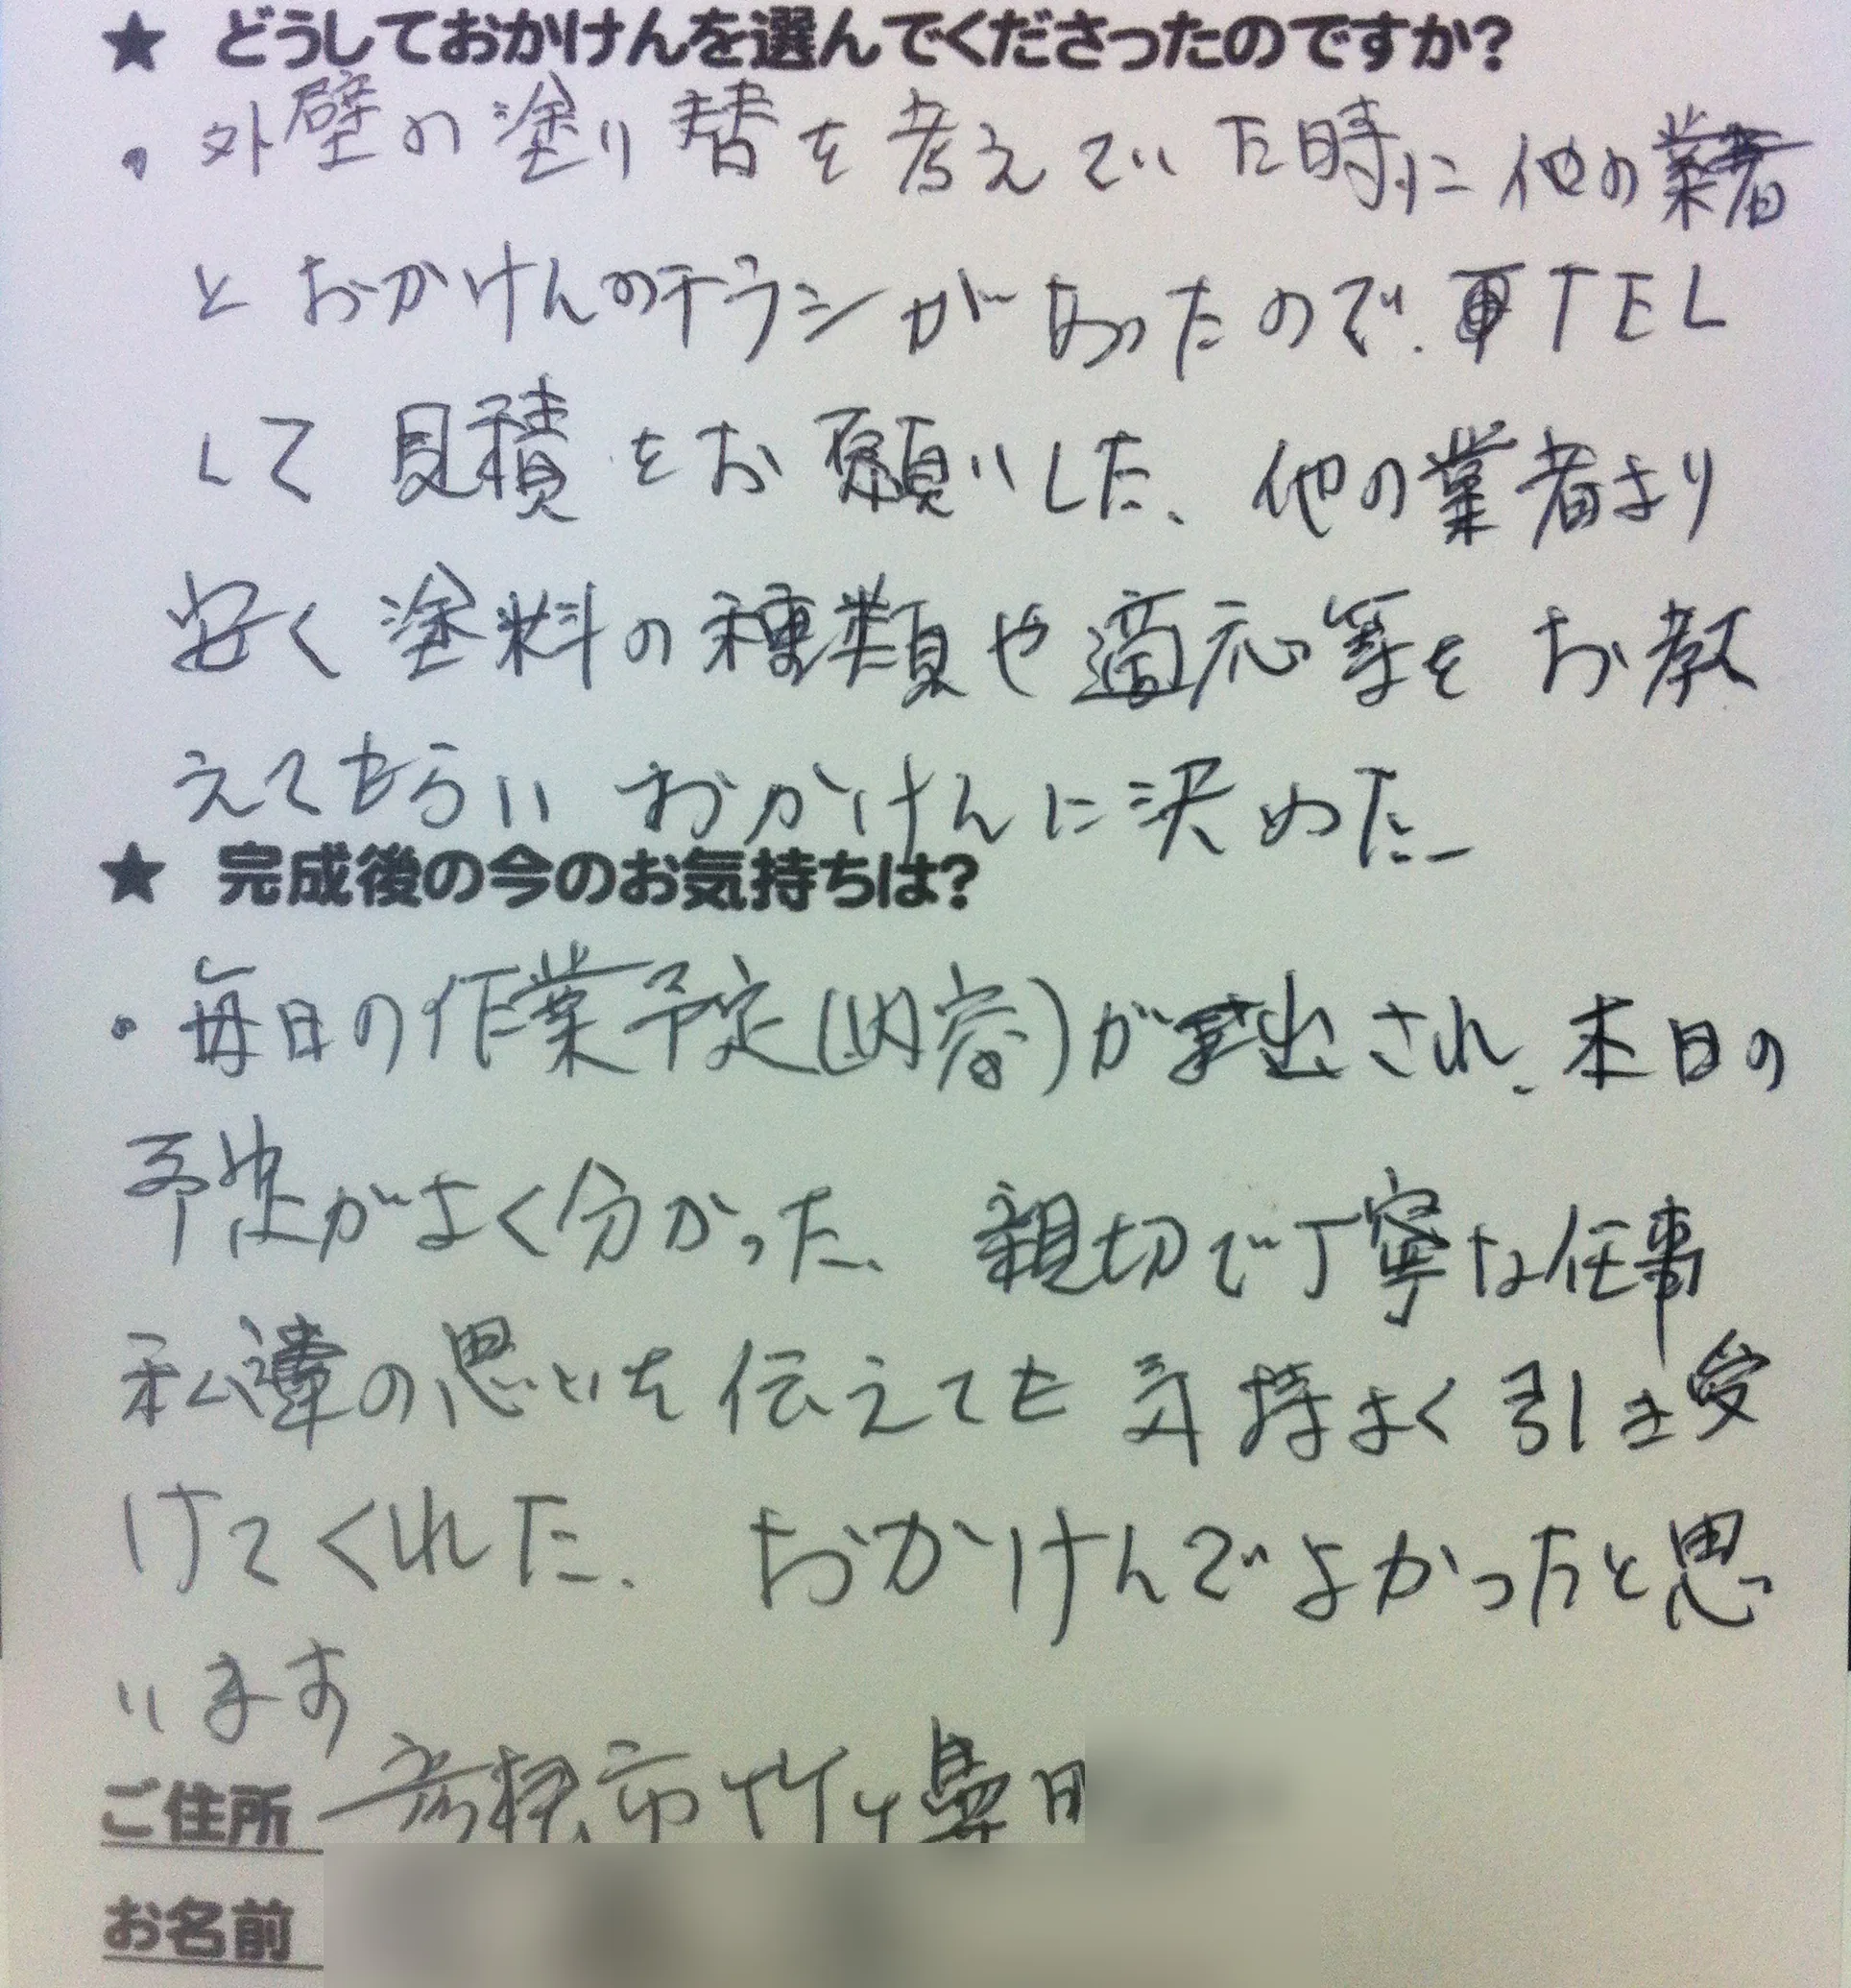 ★ どうしておかけんを選んでくださったのですか?
・外壁の塗り替を考えていた時に他の業者
とおかけんのチラシがあったので、TEL
して見積をお願いした、他の業者より
安く塗料の種類や適応等をお教
えてもらいおかけんに決めた
★ 完成後の今のお気持ちは?
・毎日の作業予定(内容)が出され、本日の
予定がよく分かった、親切で丁寧な仕事
私達の思いを伝えても気持よく引き受
けてくれた、おかけんでよかったと思
います
ご住所 彦根市竹ヶ鼻町
お名前